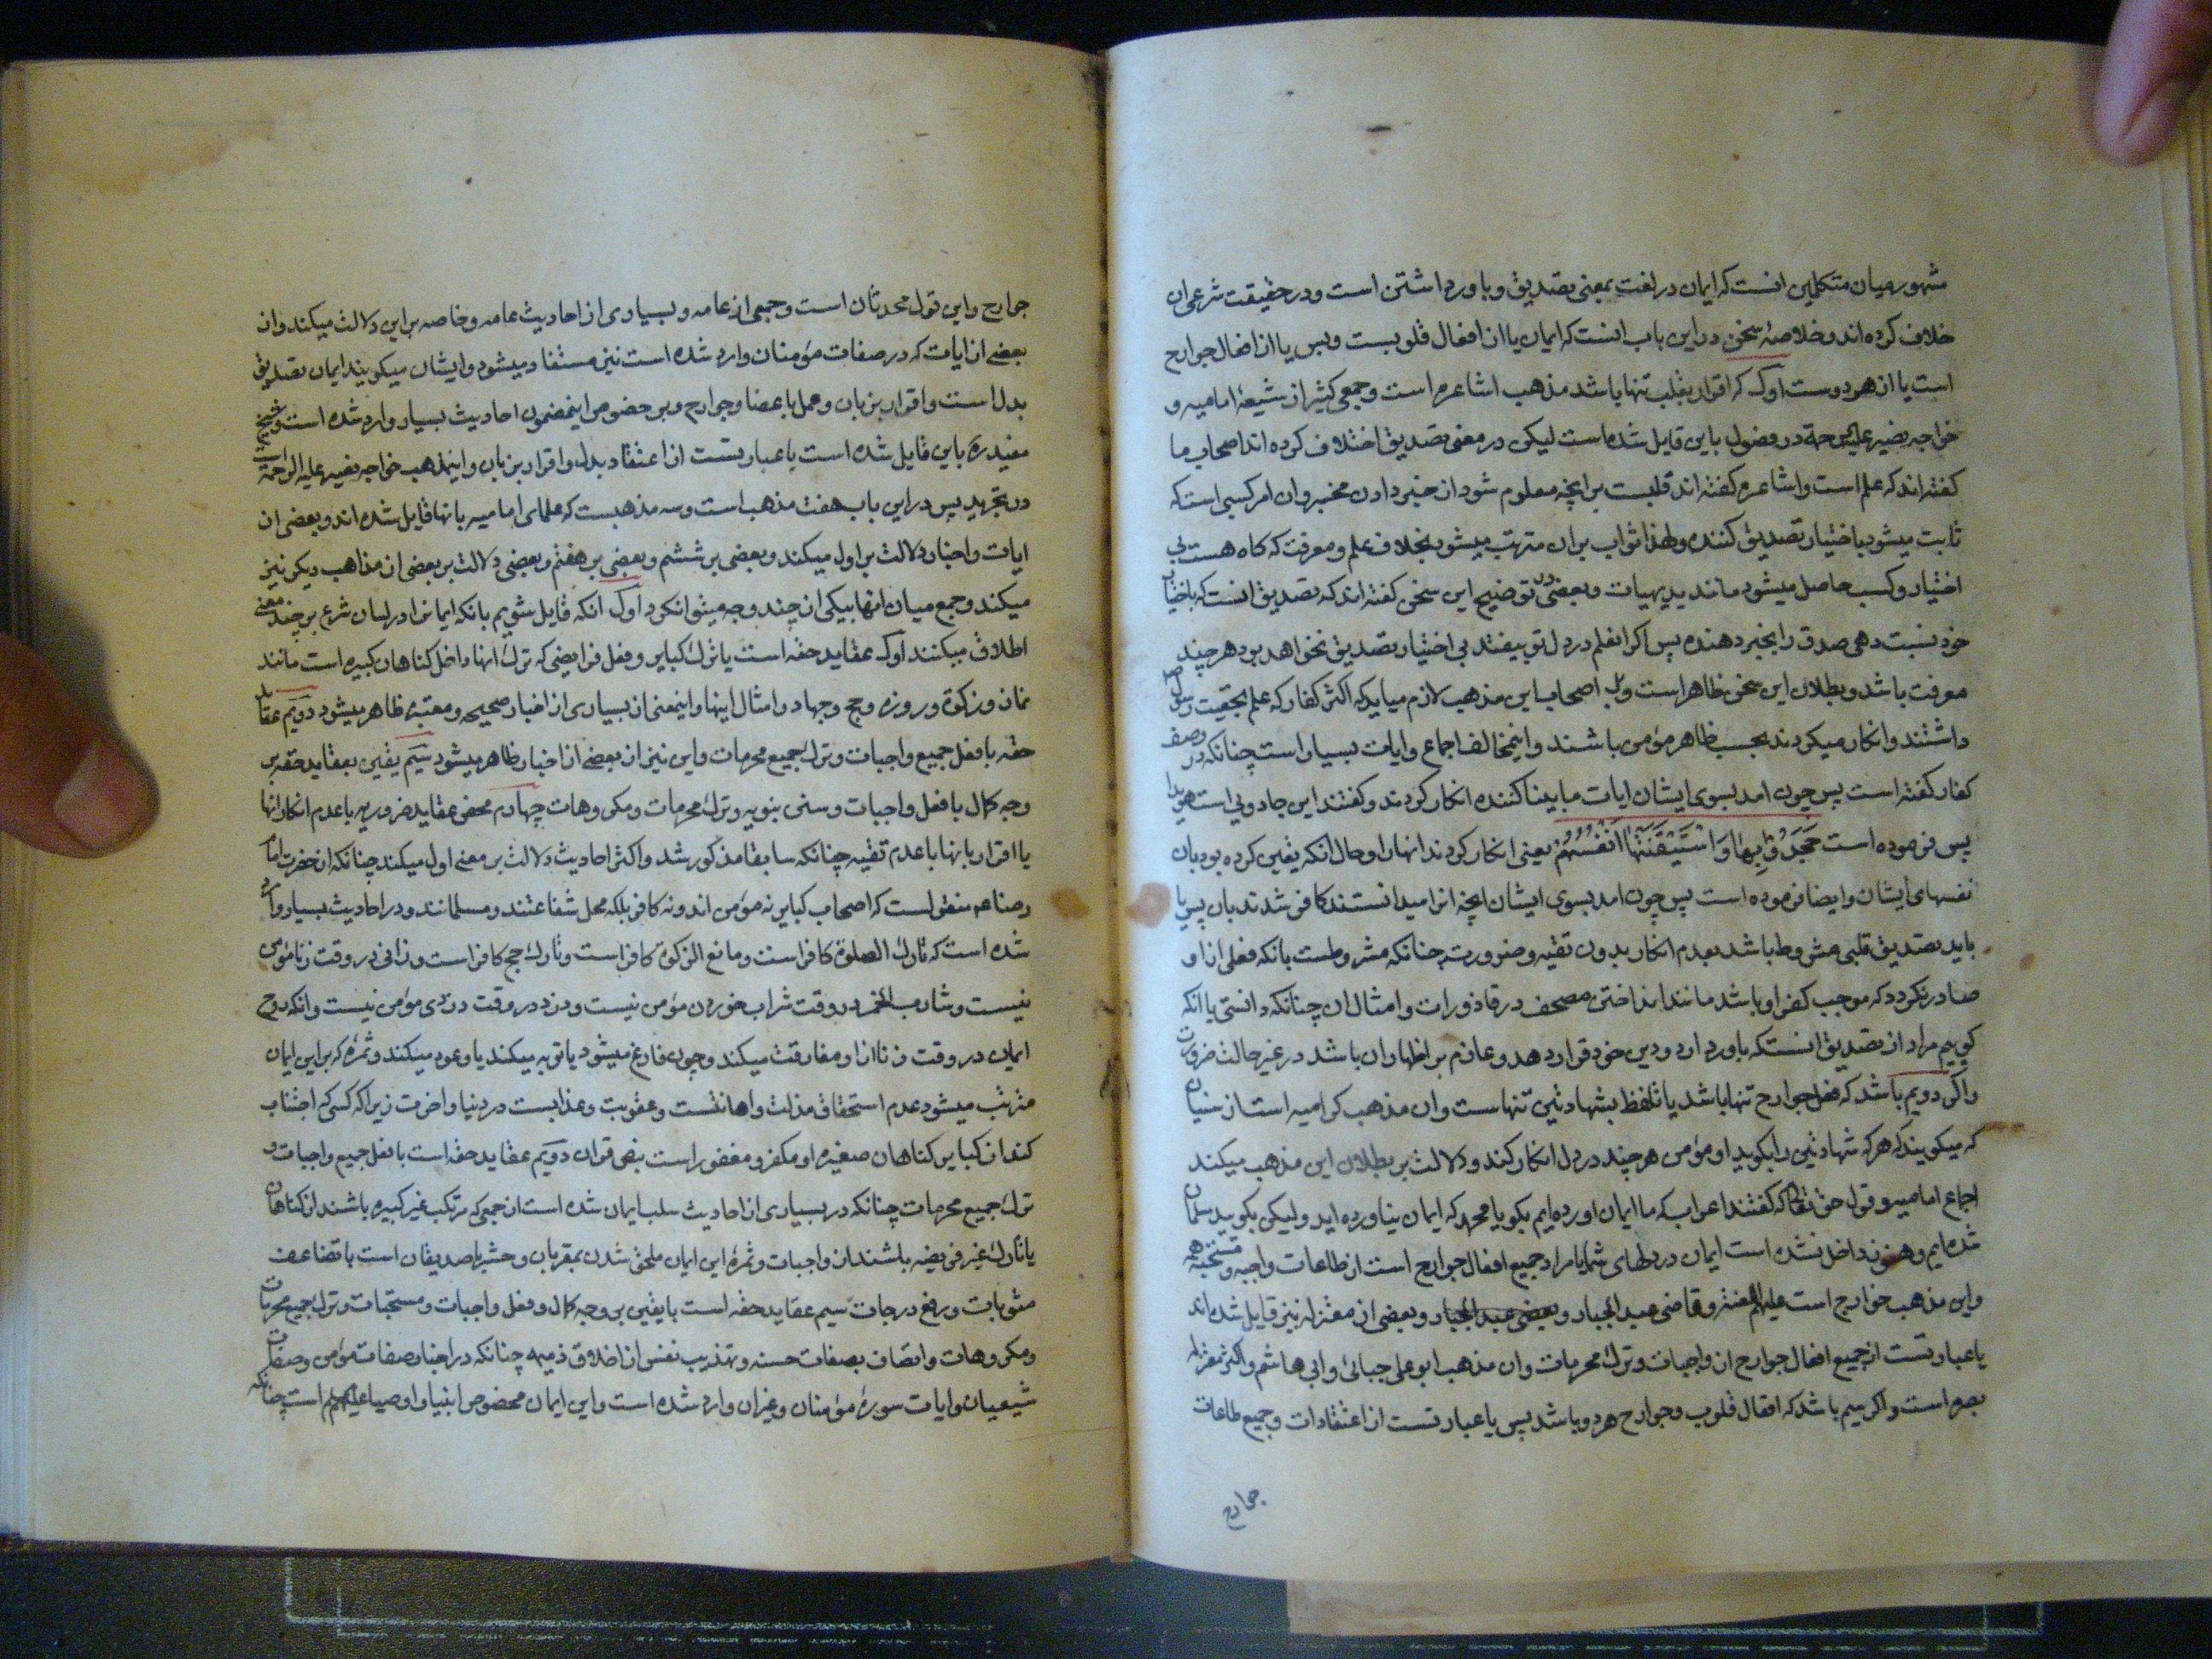 مشهور میان متکلمین انست که ایمان در لغت بمعنی تصدیق و باور داشتن است و در حقیقت شرعی ان
خلاف کرده اند و خلاصهٔ سخن در این باب انست که ایمان یا از افعال قلوبست و بس یا از افعال جوارح
است یا از هر دوست اول که اقرار بقلب تنها باشد مذهب اشاعره است و جمعی کثیر از شیعهٔ امامیه و
خواجه نصیر علیه الرحمة در فصول باین قایل شده است لیکن در معنی تصدیق اختلاف کرده اند اصحاب ما
کفته اند که علم است و اشاعره کفته اند قلبست بر انچه معلوم شود از خبر دادن مخبر و ان امر کسبی است که
ثابت میشود باختیار تصدیق کننده و لهذا ثواب بران مترتب میشود بخلاف علم و معرفت که کاه هست بی
اختیار و کسب حاصل میشود مانند بدیهیات و بعضی در توضیح این سخن کفته اند که تصدیق انست که باختیار
خود نسبت دهی صدق را بخبر دهنده پس اکر انعلم در دل تو بیفتد بی اختیار تصدیق نخواهد بود هر چند
معرفت باشد و بطلان این سخن ظاهر است و بر اصحاب این مذهب لازم میاید که اکثر کفار که علم بحقیت رسول ص
داشتند و انکار میکردند بحسب ظاهر مؤمن باشند و این مخالف اجماع و ایات بسیار است چنانکه در وصف
کفار کفته است پس چون امد بسوی ایشان ایات ما بینا کننده انکار کردند و کفتند این جادویی است هویدا
پس فرموده است جَحَدُوْا بِهٰا وَ اسْتَیْقَنَتْهٰا اَنْفُسُهُمْ یعنی انکار کردند انها را و حال انکه یقین کرده بود بان
نفسهای ایشان و ایضا فرموده است پس چون امد بسوی ایشان انچه انرا میدانستند کافر شدند بان پس یا
باید تصدیق قلبی مشروط باشد بعدم انکار بدون تقیه و ضرورت چنانکه مشروطست بانکه فعلی از او
صادر نکردد که موجب کفر او باشد مانند انداختن مصحف در قاذورات و امثال ان چنانکه دانستی یا انکه
کوییم مراد از تصدیق انستکه باور دارد و دین خود قرار دهد و عازم بر اظهار ان باشد در غیر حالت ضرورت
و اکر دویم باشد که فعل جوارح تنها باشد یا تلفظ بشهادتین تنهاست و ان مذهب کرامیه است از سنیان
که میکویند که هر که شهادتین را بکوید او مؤمن هر چند در دل انکار کند و دلالت بر بطلان این مذهب میکند
اجماع امامیه و قول حق تعالی که کفتند اعراب که ما ایمان اورده ایم بکو یا محمد که ایمان نیاورده اید و لیکن بکویید مسلمان
شده ایم و هنوز داخل نشده است ایمان در دلهای شما یا مراد جمیع افعال جوارح است از طاعات واجبه و مستحبه همه
و این مذهب خوارج است علیهم اللعنة و قاضی عبد الجبار و بعضی عبد الجبار و بعضی از معتزله نیز قایل شده اند
یا عبارتست از جمیع افعال جوارح از واجبات و ترک محرمات و ان مذهب ابو علی جبائی و ابی هاشم و اکثر معتزله
بصره است و اکر سیم باشد که افعال قلوب و جوارح هر دو باشد پس یا عبارتست از اعتقادات و جمیع طاعات
جوارح
جوارح و این قول محدثان است و جمعی از عامه و بسیاری از احادیث عامه و خاصه بر این دلالت میکند و از
بعضی از ایات که در صفات مؤمنان وارد شده است نیز مستفاد میشود و ایشان میکویند ایمان تصدیق
بدل است و اقرار بزبان و عمل باعضا و جوارح و بر خصوص اینمضمون احادیث بسیار وارد شده است و شیخ
مفید ره باین قایل شده است یا عبارتست از اعتقاد بدل و اقرار بزبان و اینمذهب خواجه نصیر علیه الرحمة است
در تجرید پس در این باب هفت مذهب است و سه مذهبست که علمای امامیه بانها قایل شده اند و بعضی از
ایات و اخبار دلالت بر اول میکند و بعضی بر ششم و بعضی بر هفتم و بعضی دلالت بر بعضی از مذاهب دیکر نیز
میکند و جمع میان انها بیکی از چند وجه میتوان کرد اول انکه قایل شویم بانکه ایمانرا در لسان شرع بر چند معنی
اطلاق میکنند اول عقاید حقه است با ترک کبایر و فعل فرایضی که ترک انها داخل کناهان کبیره است مانند
نماز و زکوة و روزه و حج و جهاد و امثال اینها و اینمعنی از بسیاری از اخبار صحیحه و معتبره ظاهر میشود دویم عقاید
حقه با فعل جمیع واجبات و ترک جمیع محرمات و این نیز از بعضی از اخبار ظاهر میشود سیم یقین بعقاید حقه بر
وجه کمال با فعل واجبات و سنن نبویه و ترک محرمات و مکروهات چهارم محض عقاید ضروریه با عدم انکار انها
یا اقرار بانها با عدم تقیه چنانکه سابقا مذکور شد و اکثر احادیث دلالت بر معنی اول میکند چنانکه از حضرت امام
رضا عم منقولست که اصحاب کبایر نه مؤمن اند و نه کافر بلکه محل شفاعتند و مسلمانند و در احادیث بسیار وارد
شده است که تارک الصلوة کافر است و مانع الزکوة کافر است و تارک حج کافر است و زانی در وقت زنا مؤمن
نیست و شارب الخمر در وقت شراب خوردن مؤمن نیست و دزد در وقت دزدی مؤمن نیست و انکه روح
ایمان در وقت زنا از او مفارقت میکند و چون فارغ میشود یا توبه میکند یا و عود میکند و ثمرهٔ که بر این ایمان
مترتب میشود عدم استحقاق مذلت و اهانتست و عقوبت و عذابست در دنیا و اخرت زیرا که کسی که اجتناب
کند از کبایر کناهان صغیره او مکفر و مغفور است بنص قران دویم عقاید حقه است با فعل جمیع واجبات و
ترک جمیع محرمات چنانکه در بسیاری از احادیث سلب ایمان شده است از جمعی که مرتکب غیر کبیره باشند از کناهان
یا تارک غیر فریضه باشند از واجبات و ثمرهٔ این ایمان ملحق شدن بمقربان و حشر با صدیقان است با تضاعف
مثوبات و رفع درجات سیم عقاید حقه است با یقین بر وجه کمال و فعل واجبات و مستحبات و ترک جمیع محرمات
و مکروهات و اتصاف بصفات حسنه و تهذیب نفس از اخلاق ذمیمه چنانکه در اخبار صفات مؤمن و صفات
شیعیان و ایات سورهٔ مؤمنان و غیر ان وارد شده است و این ایمان مخصوص انبیا و اوصیا علیهم است چنانکه